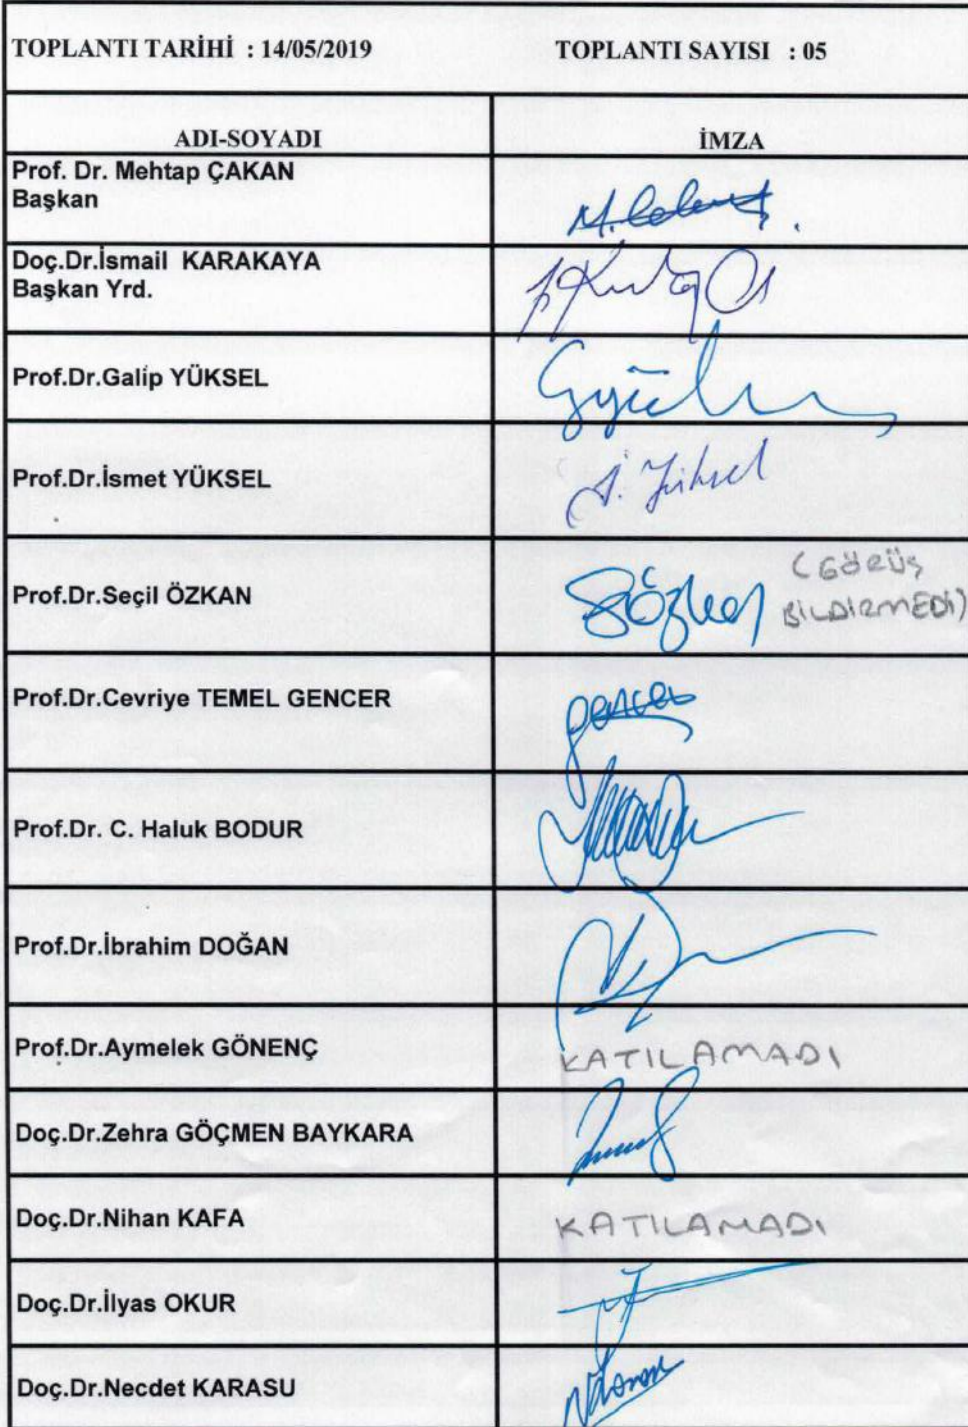 TOPLANTI TARİHİ : 14/05/2019 TOPLANTI SAYISI : 05
ADI-SOYADI İMZA
Prof. Dr. Mehtap ÇAKAN
Başkan
Doç.Dr.İsmail KARAKAYA
Başkan Yrd.
Prof.Dr.Galip YÜKSEL
Prof.Dr.İsmet YÜKSEL İ. Yüksel
Prof.Dr.Seçil ÖZKAN SÖzkan (GÖRÜŞ
BİLDİRMEDİ)
Prof.Dr.Cevriye TEMEL GENCER gencer
Prof.Dr. C. Haluk BODUR
Prof.Dr.İbrahim DOĞAN
Prof.Dr.Aymelek GÖNENÇ KATILAMADI
Doç.Dr.Zehra GÖÇMEN BAYKARA
Doç.Dr.Nihan KAFA KATILAMADI
Doç.Dr.İlyas OKUR
Doç.Dr.Necdet KARASU